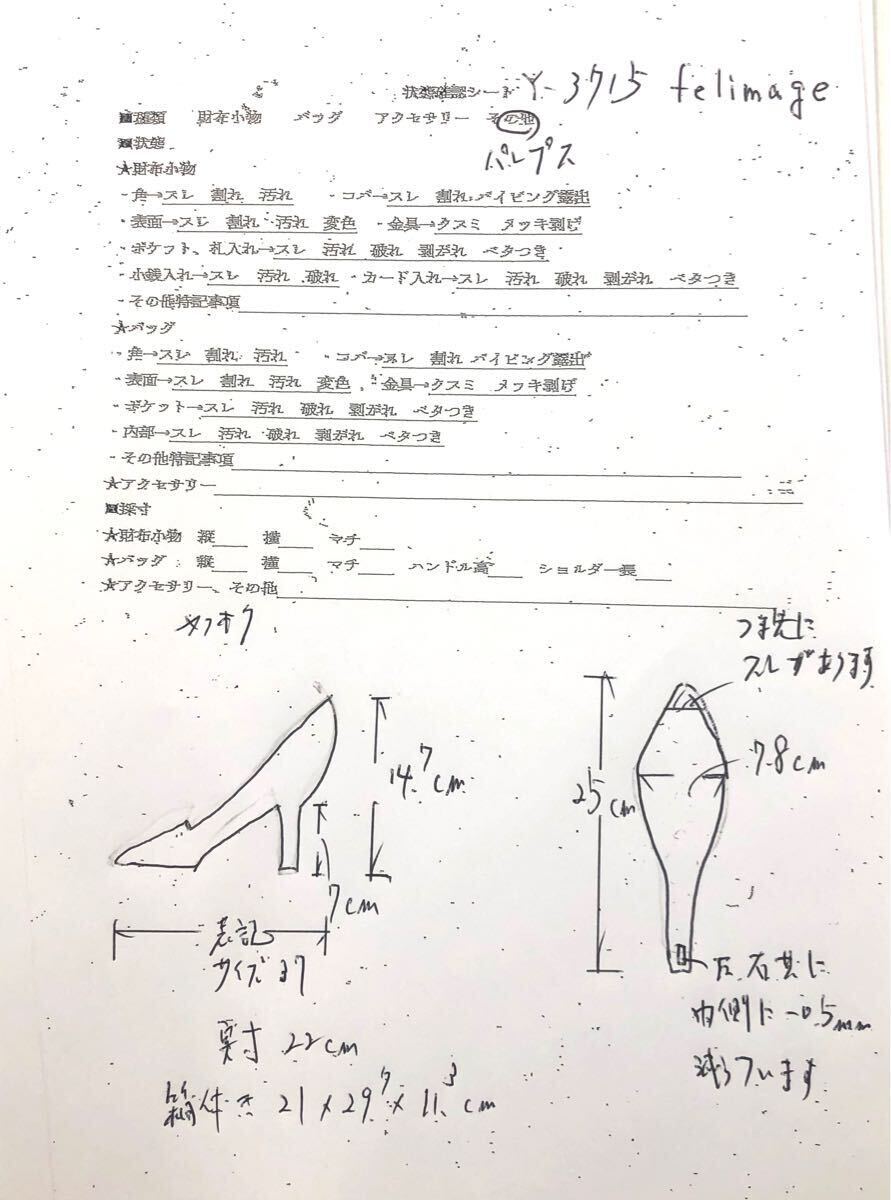 状態確認シート Y-3715 felimage
■種類 財布小物 バッグ アクセサリー その他
パンプス
■状態
★財布小物
・角→スレ 割れ 汚れ ・コバ→スレ 割れ パイピング露出
・表面→スレ 割れ 汚れ 変色 ・金具→クスミ メッキ剥げ
・ポケット、札入れ→スレ 汚れ 破れ 剥がれ ベタつき
・小銭入れ→スレ 汚れ 破れ ・カード入れ→スレ 汚れ 破れ 剥がれ ベタつき
・その他特記事項
★バッグ
・角→スレ 割れ 汚れ ・コバ→スレ 割れ パイピング露出
・表面→スレ 割れ 汚れ 変色 ・金具→クスミ メッキ剥げ
・ポケット→スレ 汚れ 破れ 剥がれ ベタつき
・内部→スレ 汚れ 破れ 剥がれ ベタつき
・その他特記事項
★アクセサリー
■採寸
★財布小物 縦 横 マチ
★バッグ 縦 横 マチ ハンドル高 ショルダー長
★アクセサリー、その他
ヤフオク
つま先に
スレがあります
14.7cm
7.8cm
25cm
7cm
表記
サイズ37
左右共に
内側に-0.5mm
減っています
実寸 22cm
21×29.7×11.3cm